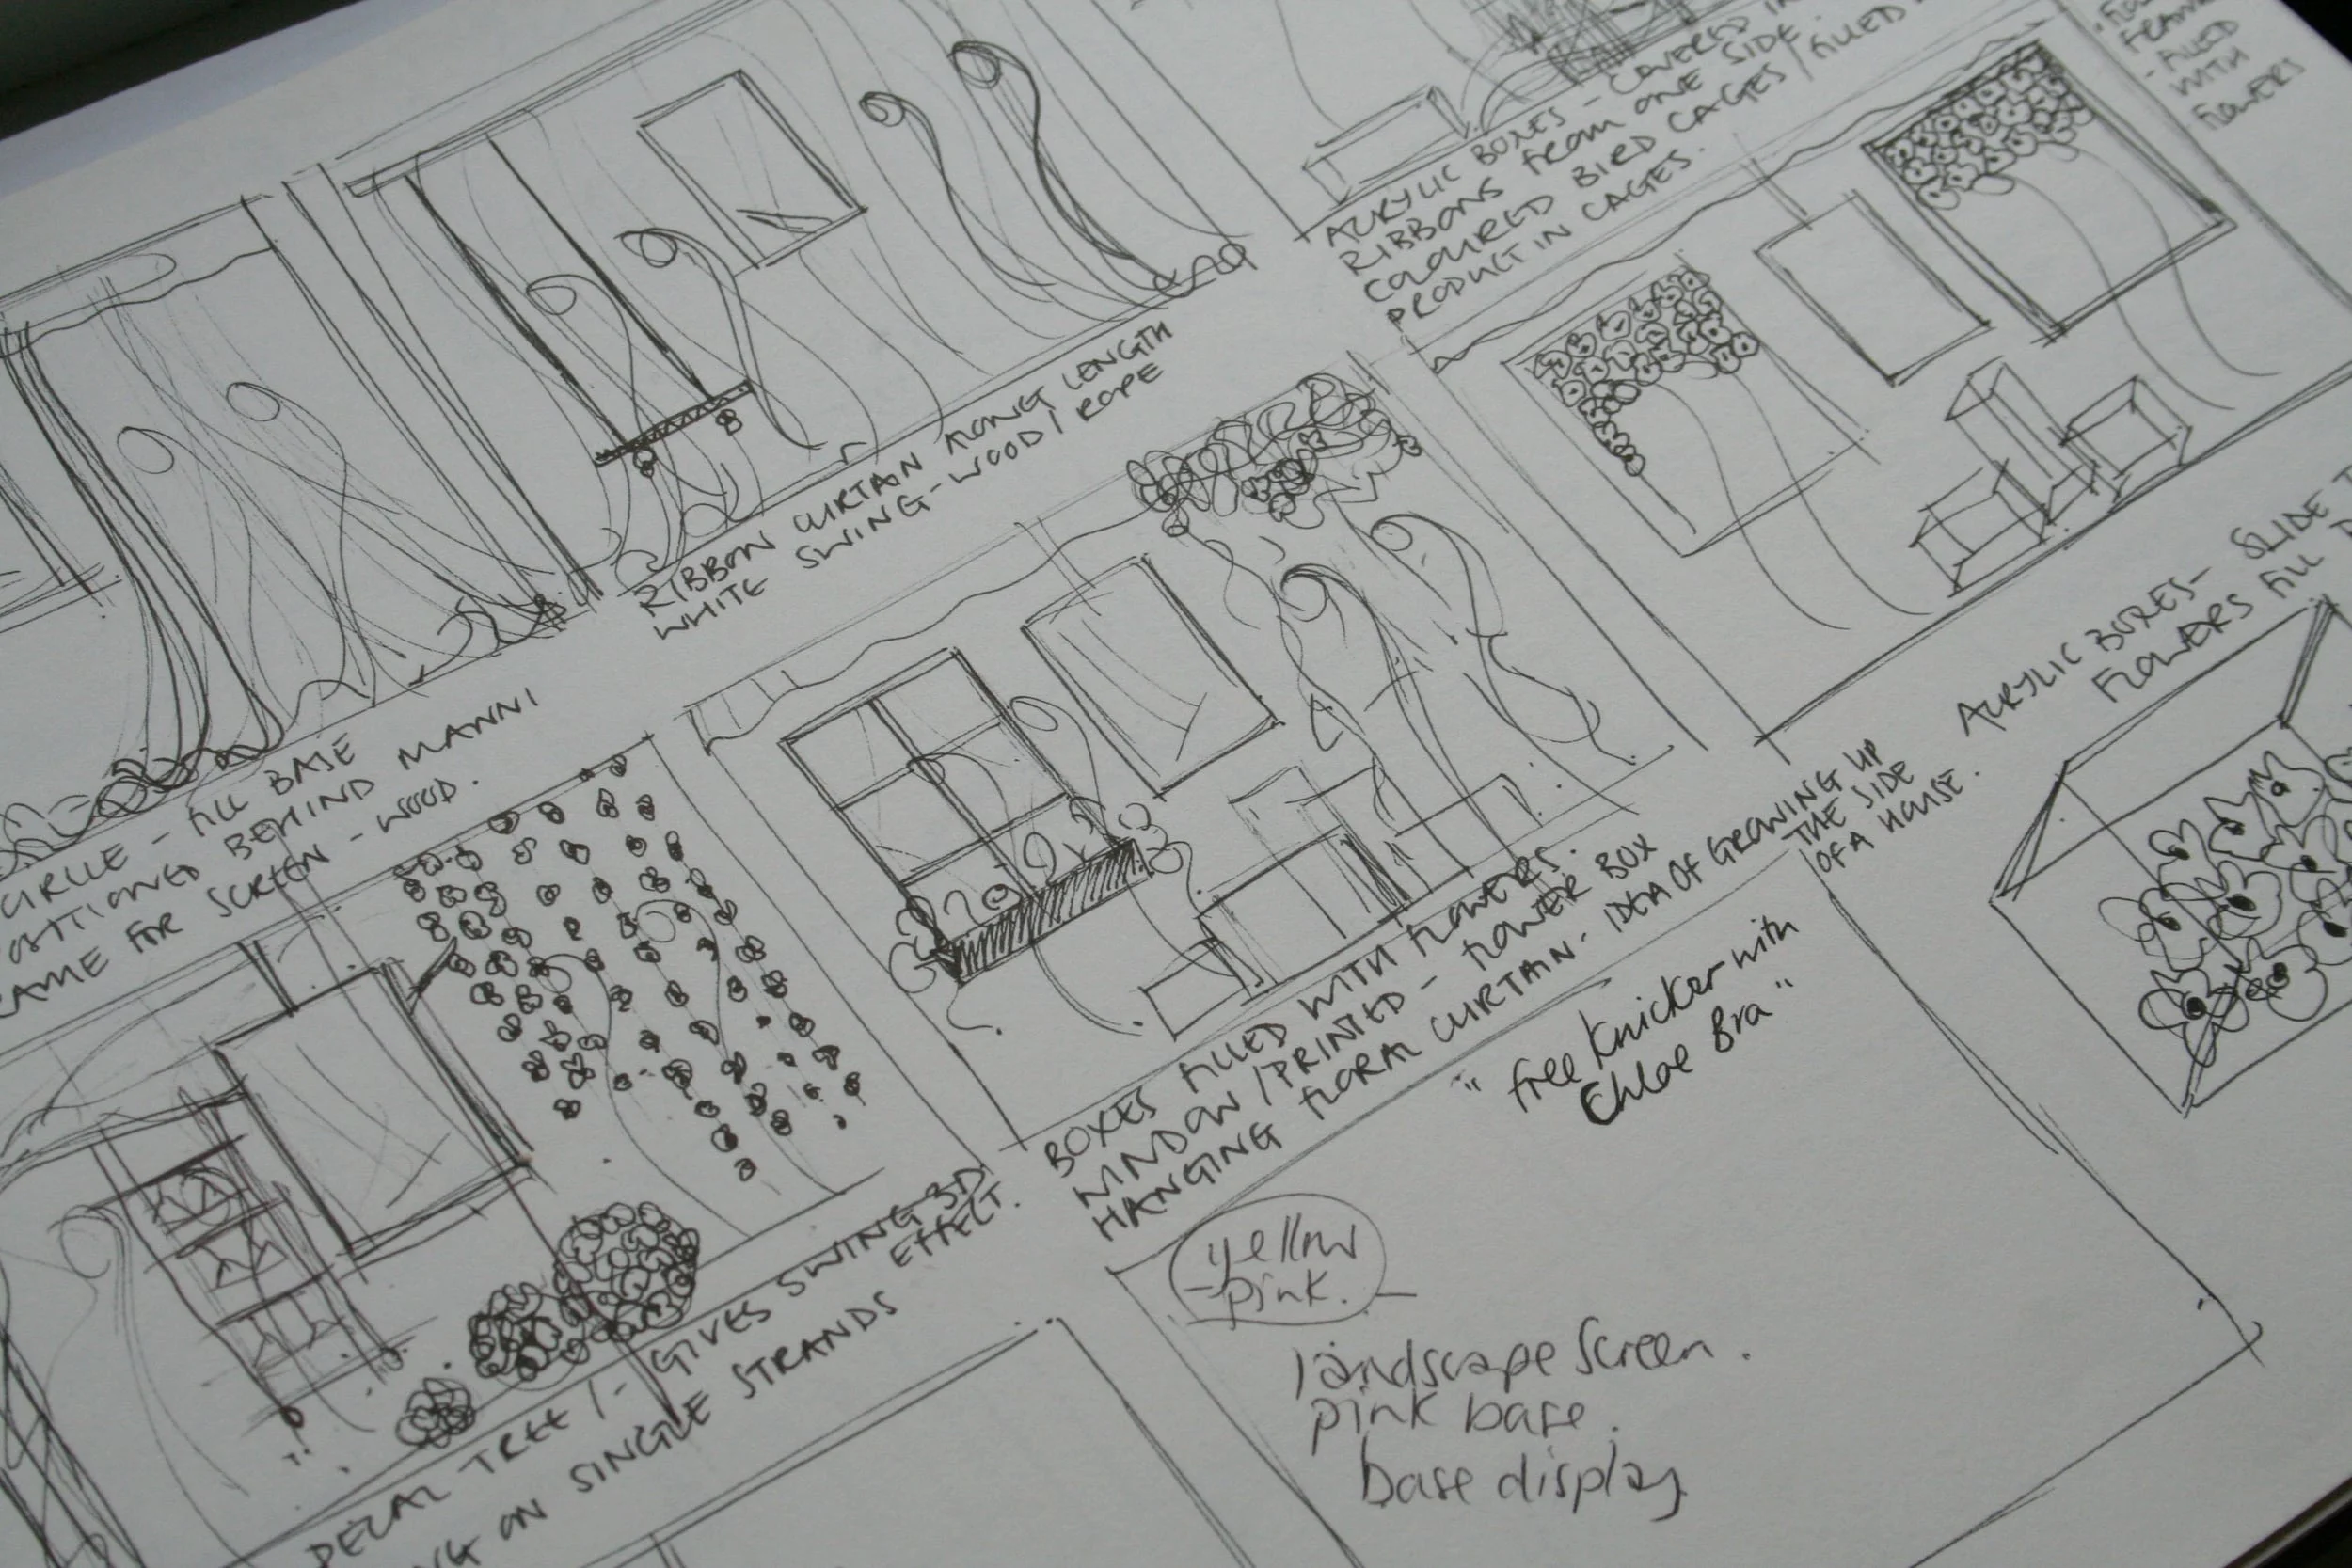 RIBBON CURTAIN ALONG LENGTH
WHITE SWING - WOOD / ROPE
ACRYLIC BOXES - COVERED IN
RIBBONS FROM ONE SIDE.
COLOURED BIRD CAGES / FILLED
PRODUCT IN CAGES.
- FILLED
WITH
FLOWERS
- FILL BASE
BEHIND MANNI
FOR SCREEN - WOOD.
BOXES FILLED WITH FLOWERS.
WINDOW / PRINTED - FLOWER BOX
HANGING FLORAL CURTAIN - IDEA OF GROWING UP
THE SIDE
OF A HOUSE.
ACRYLIC BOXES - SLIDE
FLOWERS FILL
DECAL TREE / - GIVES SWING 3D
EFFECT.
ON SINGLE STRANDS
"free Knicker with
Chloe Bra"
yellow
pink.
landscape screen.
pink base.
base display